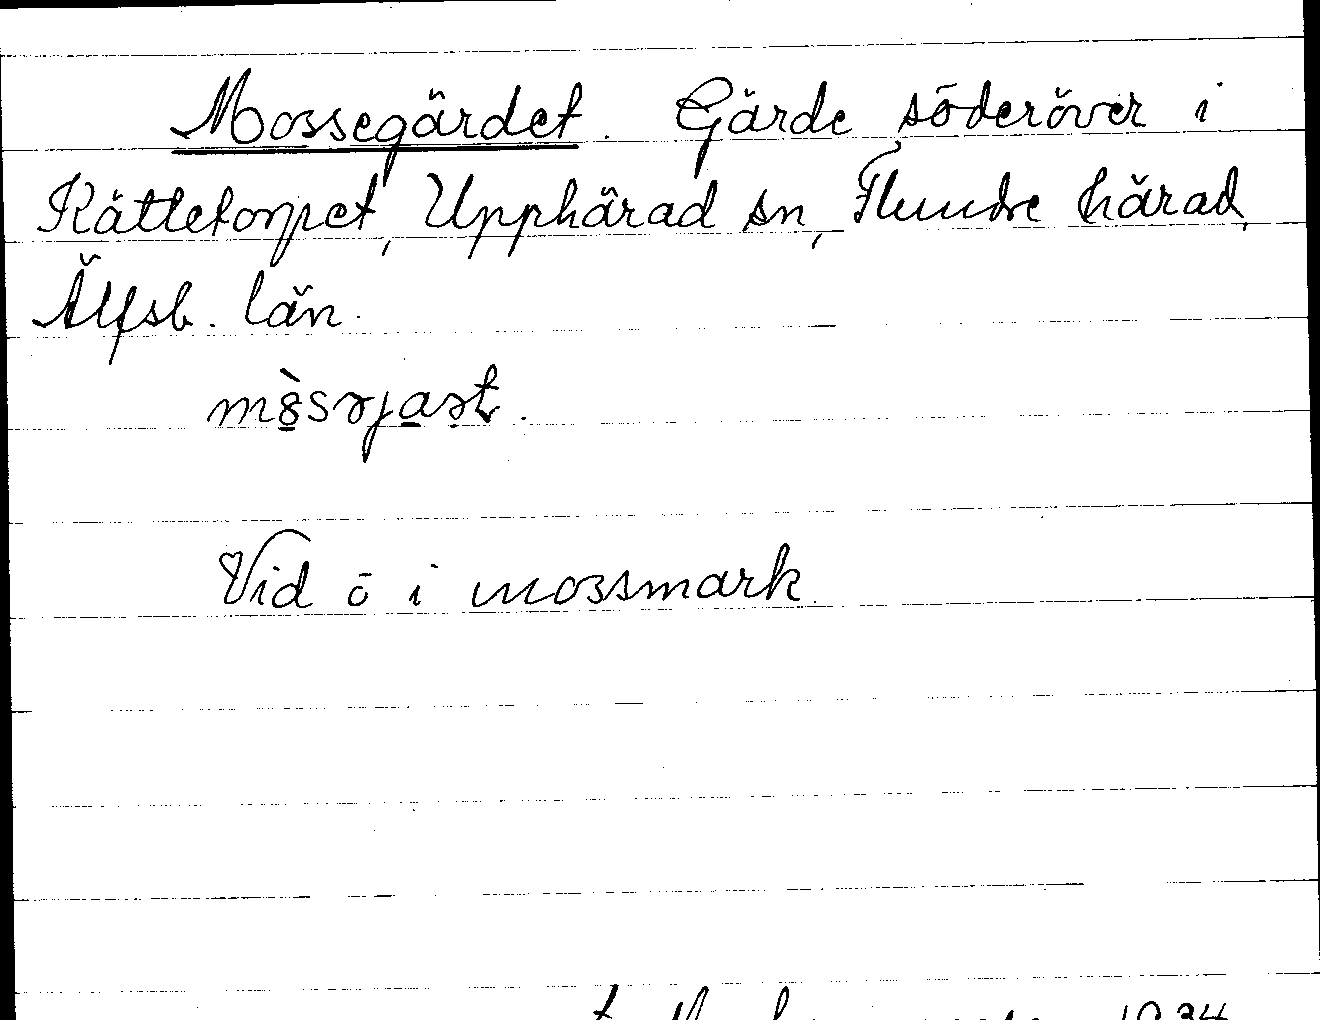 Mossegärdet. Gärde söderöver i
Kättetorpet, Upphärad sn, Flundre härad,
Älfsb. län.
Vid ō i mossmark.
1934